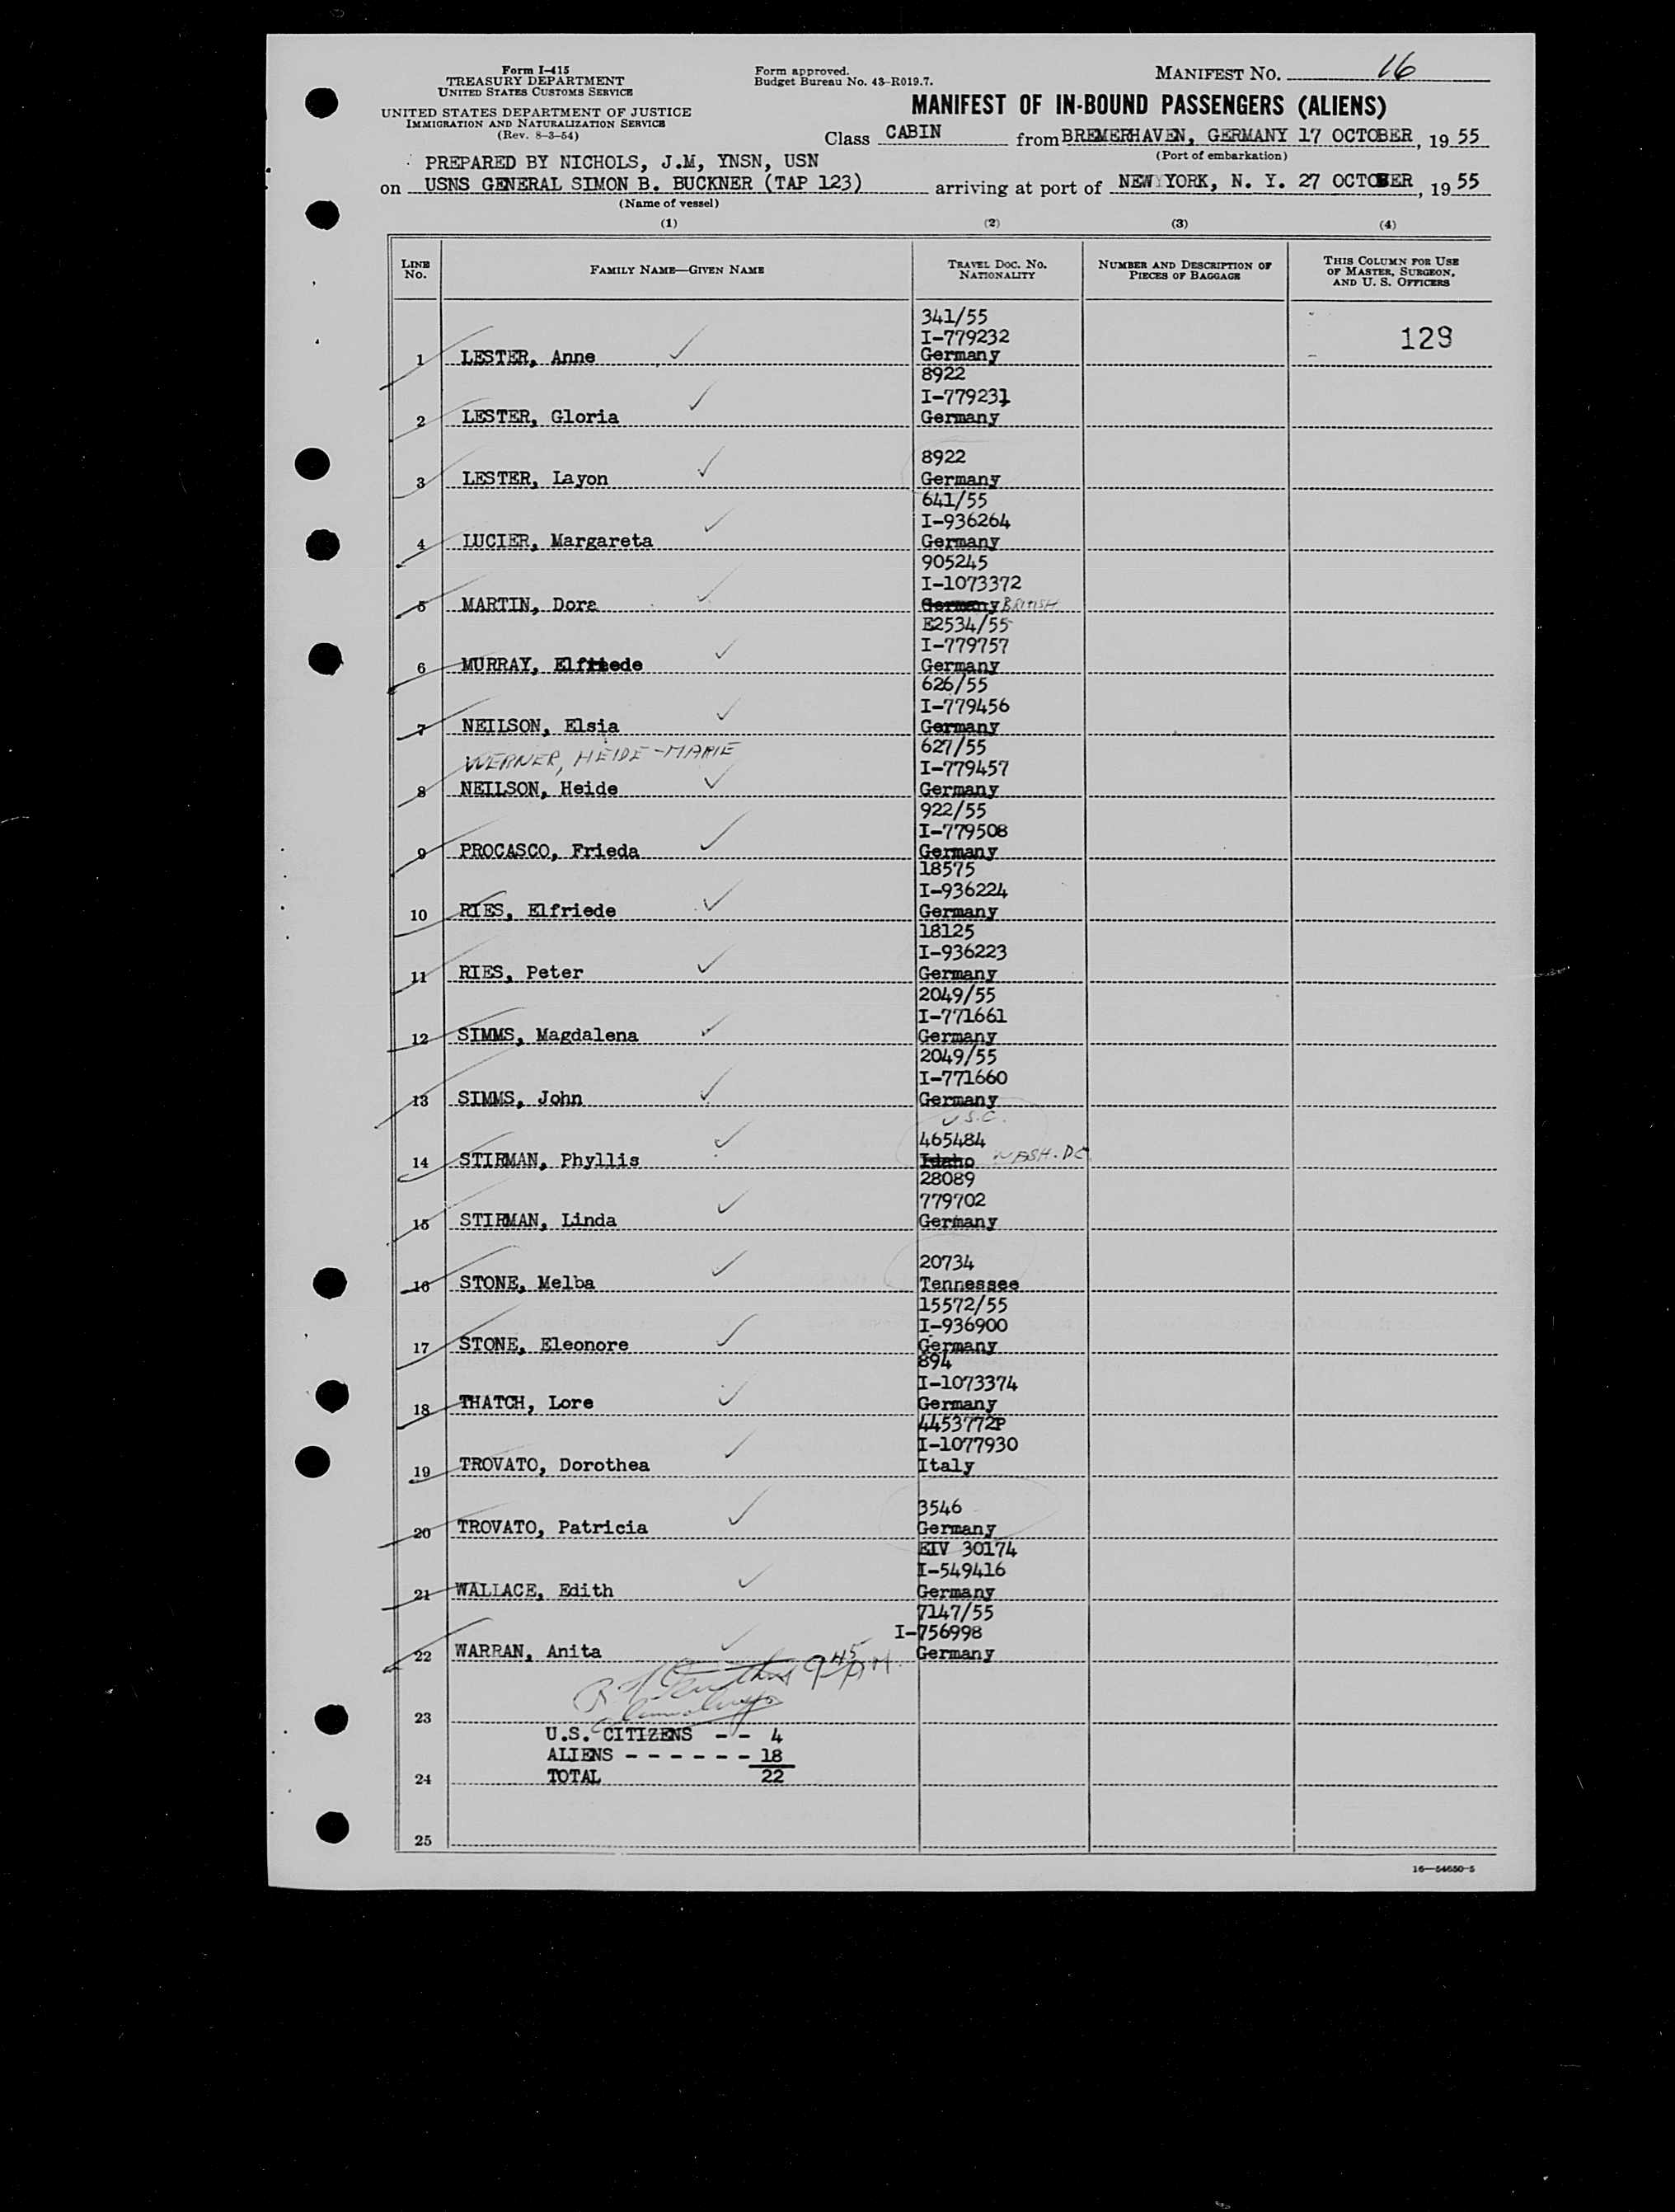 Form I-415
TREASURY DEPARTMENT
UNITED STATES CUSTOMS SERVICE
UNITED STATES DEPARTMENT OF JUSTICE
IMMIGRATION AND NATURALIZATION SERVICE
(Rev. 8-3-54)
Form approved.
Budget Bureau No. 43-R019.7.
MANIFEST NO. 16
MANIFEST OF IN-BOUND PASSENGERS (ALIENS)
Class CABIN from BREMERHAVEN, GERMANY 17 OCTOBER, 19 55
(Port of embarkation)
PREPARED BY NICHOLS, J.M, YNSN, USN
on USNS GENERAL SIMON B. BUCKNER (TAP 123) arriving at port of NEW YORK, N. Y. 27 OCTOBER, 19 55
(Name of vessel)
(1) (2) (3) (4)
LINE NO.
FAMILY NAME—GIVEN NAME
TRAVEL DOC. NO. NATIONALITY
NUMBER AND DESCRIPTION OF PIECES OF BAGGAGE
THIS COLUMN FOR USE OF MASTER, SURGEON, AND U. S. OFFICERS
341/55
I-779232
129
1 LESTER, Anne Germany
8922
I-779231
2 LESTER, Gloria Germany
8922
3 LESTER, Layon Germany
641/55
I-936264
4 LUCIER, Margareta Germany
905245
I-1073372
5 MARTIN, Dora Germany BRITISH
E2534/55
I-779757
6 MURRAY, Elfriede Germany
626/55
I-779456
7 NEILSON, Elsia Germany
627/55
WERNER, HEIDE-MARIE
I-779457
8 NEILSON, Heide Germany
922/55
I-779508
9 PROCASCO, Frieda Germany
18575
I-936224
10 RIES, Elfriede Germany
18125
I-936223
11 RIES, Peter Germany
2049/55
I-771661
12 SIMMS, Magdalena Germany
2049/55
I-771660
13 SIMMS, John Germany
U.S.C.
465484
14 STIRMAN, Phyllis Idaho WASH. DC
28089
779702
15 STIRMAN, Linda Germany
20734
16 STONE, Melba Tennessee
15572/55
I-936900
17 STONE, Eleonore Germany
894
I-1073374
18 THATCH, Lore Germany
4453772P
I-1077930
19 TROVATO, Dorothea Italy
3546
20 TROVATO, Patricia Germany
EIV 30174
I-549416
21 WALLACE, Edith Germany
7147/55
I-756998
22 WARRAN, Anita Germany
9 45 AM.
23
U.S. CITIZENS - - 4
ALIENS - - - - - - 18
24 TOTAL 22
25
16—54650-5